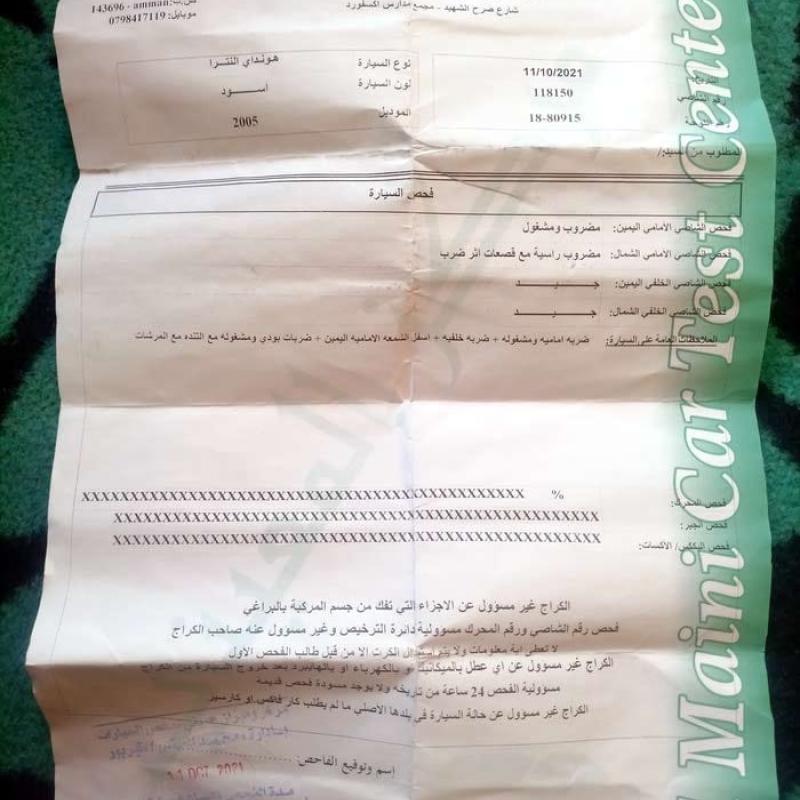 143696 - amman
موبايل: 0798417119
شارع صرح الشهيد - مجمع مدارس اكسفورد
11/10/2021
نوع السيارة هونداي النترا
رقم الشاصي 118150
لون السيارة اســود
18-80915
الموديل 2005
المطلوب من السيد/
فحص السيارة
فحص الشاصي الأمامي اليمين: مضروب ومشغول
فحص الشاصي الأمامي الشمال: مضروب راسية مع قصعات اثر ضرب
فحص الشاصي الخلفي اليمين: جـــــيـــــد
فحص الشاصي الخلفي الشمال: جـــــيـــــد
الملاحظات العامة على السيارة: ضربه اماميه ومشغوله + ضربه خلفيه + اسفل الشمعه الاماميه اليمين + ضربات بودي ومشغوله مع التنده مع المرشات
فحص المحرك: % XXXXXXXXXXXXXXXXXXXXXXXXXXXXXXXXXXXXXXXXXXXXX
فحص الجير: XXXXXXXXXXXXXXXXXXXXXXXXXXXXXXXXXXXXXXXXXXXXXXXXX
فحص البكس/ الأكسات: XXXXXXXXXXXXXXXXXXXXXXXXXXXXXXXXXXXXXXXXXXXXXXXXX
الكراج غير مسؤول عن الاجزاء التي تفك من جسم المركبة بالبراغي
فحص رقم الشاصي ورقم المحرك مسوولية دائرة الترخيص وغير مسوول عنه صاحب الكراج
لا تعطى اية معلومات ولا يتم استبدال الكرت الا من قبل طالب الفحص الأول
الكراج غير مسوول عن اي عطل بالميكانيك او بالكهرباء او بالهايبرد بعد خروج السيارة من الكراج
مسوولية الفحص 24 ساعة من تاريخه ولا يوجد مسودة فحص قديمه
الكراج غير مسوول عن حالة السيارة في بلدها الاصلي ما لم يطلب كار فاكس او كارسير
إسم وتوقيع الفاحص:
11 OCT 2021
Maini Car Test Cente